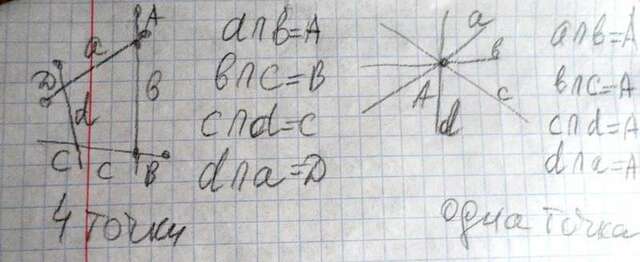 A
a
D
в
d
C
c
B
a∩в=A
в∩c=B
c∩d=C
d∩a=D
4 точки
a
в
A
c
d
a∩в=A
в∩c=A
c∩d=A
d∩a=A
одна точка